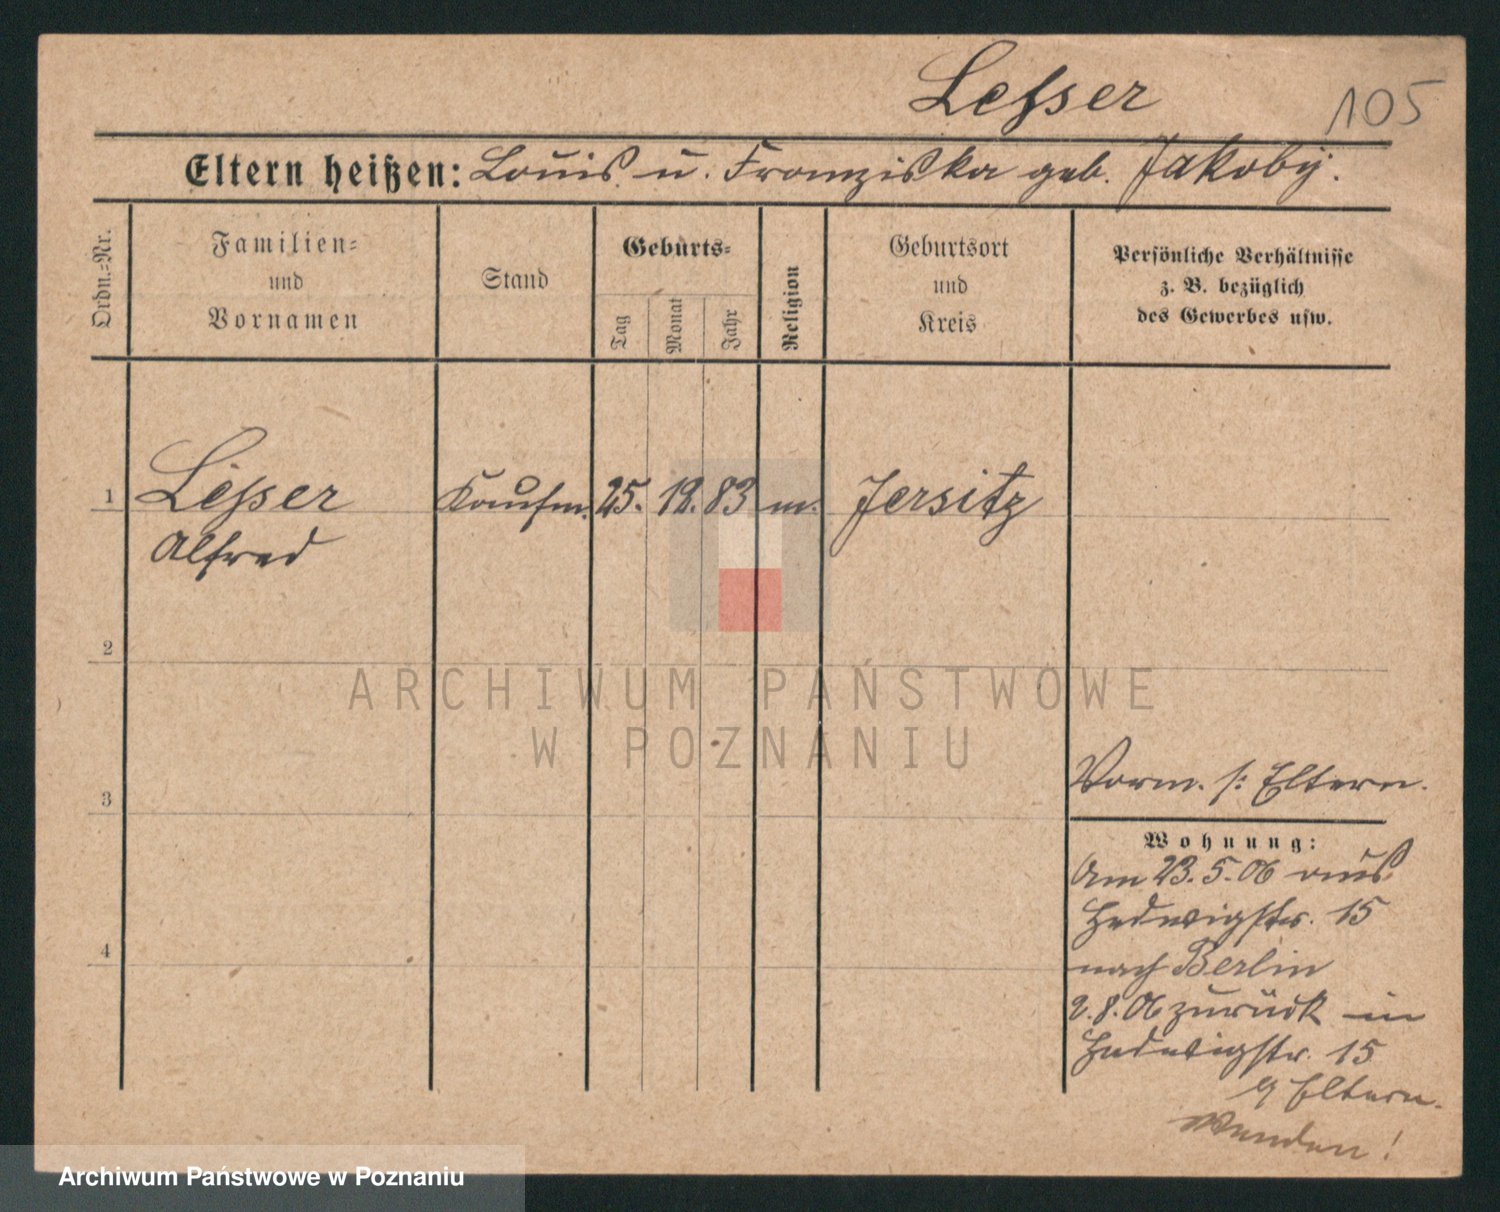 Lesser
105
Eltern heißen: Louis u. Franziska geb. Jakoby.
Ordn.=Nr.
Familien=
und
Vornamen
Stand
Geburts=
Tag
Monat
Jahr
Religion
Geburtsort
und
Kreis
Persönliche Verhältnisse
z. B. bezüglich
des Gewerbes usw.
1 Lesser Kaufm. 25. 12. 83 m. Jersitz
Alfred
2
ARCHIWUM PAŃSTWOWE
W POZNANIU
3
Vorm. s: Eltern.
Wohnung:
Am 23.5.06 aus
Hedwigstr. 15
nach Berlin
4
2.8.06 zurück in
Hedwigstr. 15
Eltern.
Wenden!
Archiwum Państwowe w Poznaniu